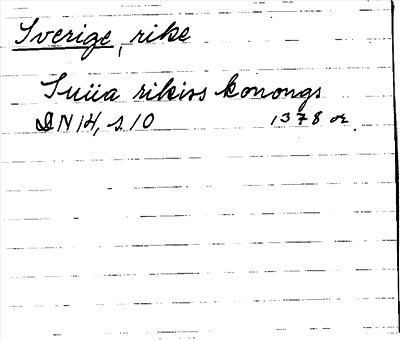 Sverige, rike
Suiia rikiss konongs
DN 14, s. 10 1378 or.